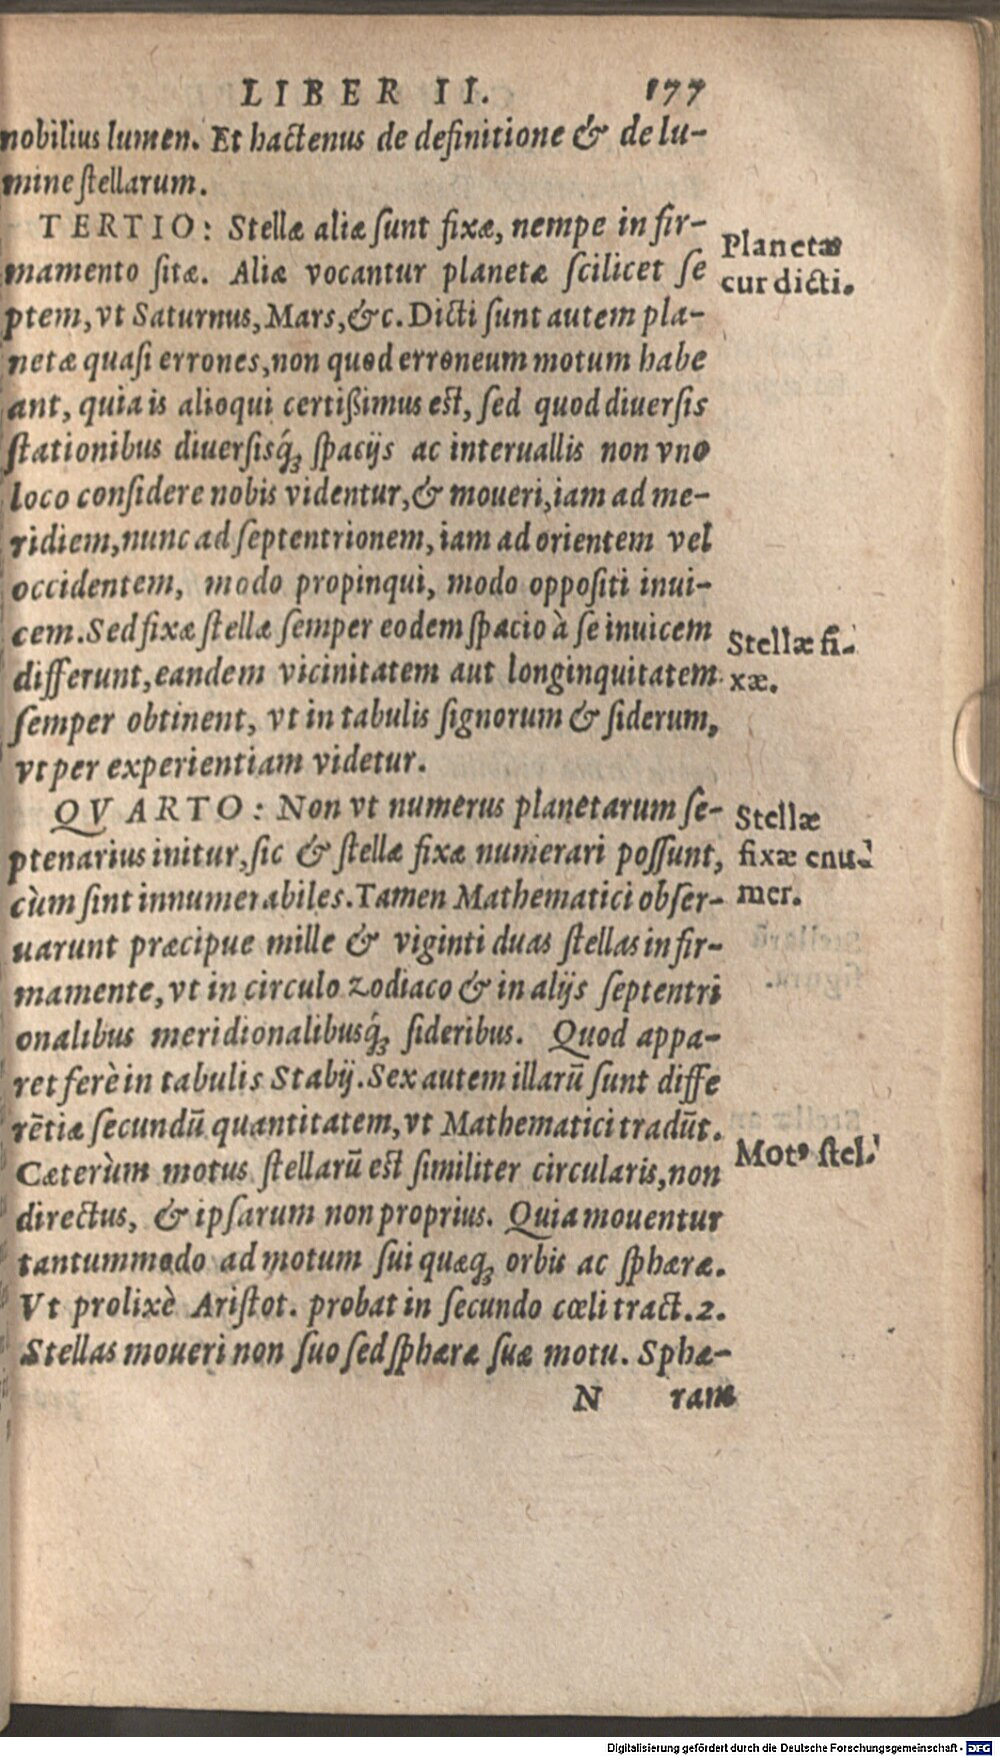 LIBER II. 177
nobilius lumen. Et hactenus de definitione & de lu-
mine ſtellarum.
TERTIO: Stellæ aliæ ſunt fixæ, nempe in fir-
mamento ſitæ. Aliæ vocantur planetæ ſcilicet ſe
ptem, vt Saturnus, Mars, &c. Dicti ſunt autem pla-
netæ quaſi errones, non quod erroneum motum habe
ant, quia is alioqui certißimus eſt, ſed quod diuerſis
ſtationibus diuerſisq́ꝫ ſpacijs ac interuallis non vno
loco conſidere nobis videntur, & moueri, iam ad me-
ridiem, nunc ad ſeptentrionem, iam ad orientem vel
occidentem, modo propinqui, modo oppoſiti inui-
cem. Sed fixæ ſtellæ ſemper eodem ſpacio à ſe inuicem
differunt, eandem vicinitatem aut longinquitatem
ſemper obtinent, vt in tabulis ſignorum & ſiderum,
vt per experientiam videtur.
QVARTO: Non vt numerus planetarum ſe-
ptenarius initur, ſic & ſtellæ fixæ numerari poſſunt,
cùm ſint innumerabiles. Tamen Mathematici obſer-
uarunt præcipue mille & viginti duas ſtellas in fir-
mamente, vt in circulo zodiaco & in alijs ſeptentri
onalibus meridionalibusq́ꝫ ſideribus. Quod appa-
ret ferè in tabulis Stabij. Sex autem illarū ſunt diffe
rētiæ ſecundū quantitatem, vt Mathematici tradūt.
Cæterùm motus ſtellarū eſt ſimiliter circularis, non
directus, & ipſarum non proprius. Quia mouentur
tantummodo ad motum ſui quæqꝫ orbis ac ſphæræ.
Vt prolixè Ariſtot. probat in ſecundo cœli tract. 2.
Stellas moueri non ſuo ſed ſphæræ ſuæ motu. Sphæ-
N ram
Planetæ
cur dicti.
Stellæ fi-
xæ.
Stellæ
fixæ enu-
mer.
Motꝰ ſtel.
Digitalisierung gefördert durch die Deutsche Forschungsgemeinschaft - DFG